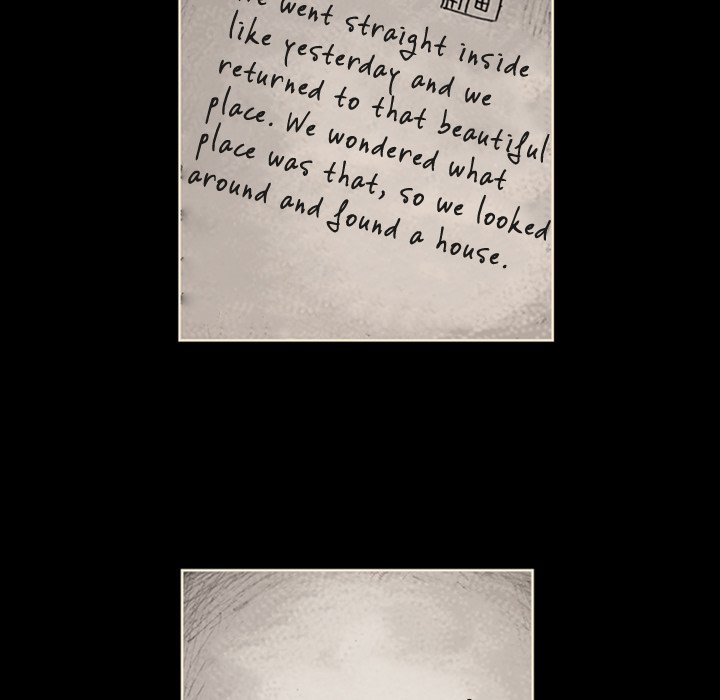 went straight inside
like yesterday and we
returned to that beautiful
place. We wondered what
place was that, so we looked
around and found a house.